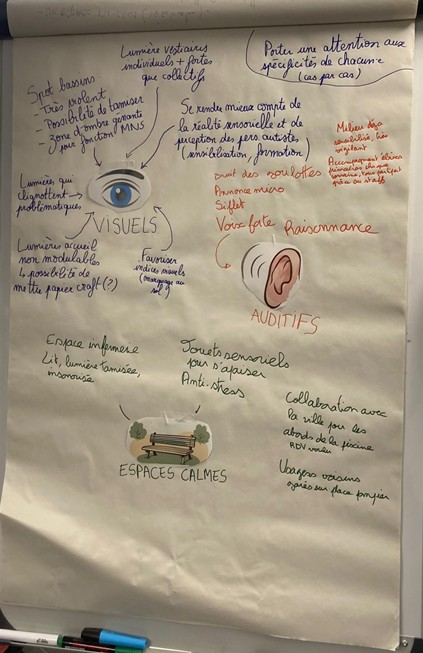 Lumière vestiaires
individuels + fortes
que collectifs
Porter une attention aux
spécificités de chacun·e
(cas par cas)
Spot bassins
- Très violent
- Possibilité de tamiser
- zone d'ombre gênante
pour fonction MNS
Se rendre mieux compte de
la réalité sensorielle et de
perception des pers. autistes
(sensibilisation, formation)
Lumières qui
clignottent
problématiques
VISUELS
Lumières accueil
non modulables
↳ possibilité de
mettre papier craft (?)
Favoriser
indices visuels
(marquage au
sol)
Milieu déjà
sensibilisé, très
vigilant
Accompagnent élèves
Bruit des roulottes
Annonce micro
Siflet
Voix forte
Raisonnance
AUDITIFS
Espace infirmerie
Lit, lumière tamisée,
insonorisée
Jouets sensoriels
pour s'apaiser
Anti-stress
ESPACES CALMES
Collaboration avec
la ville pour les
abords de la piscine
RDV
Usagers voisins
sur place